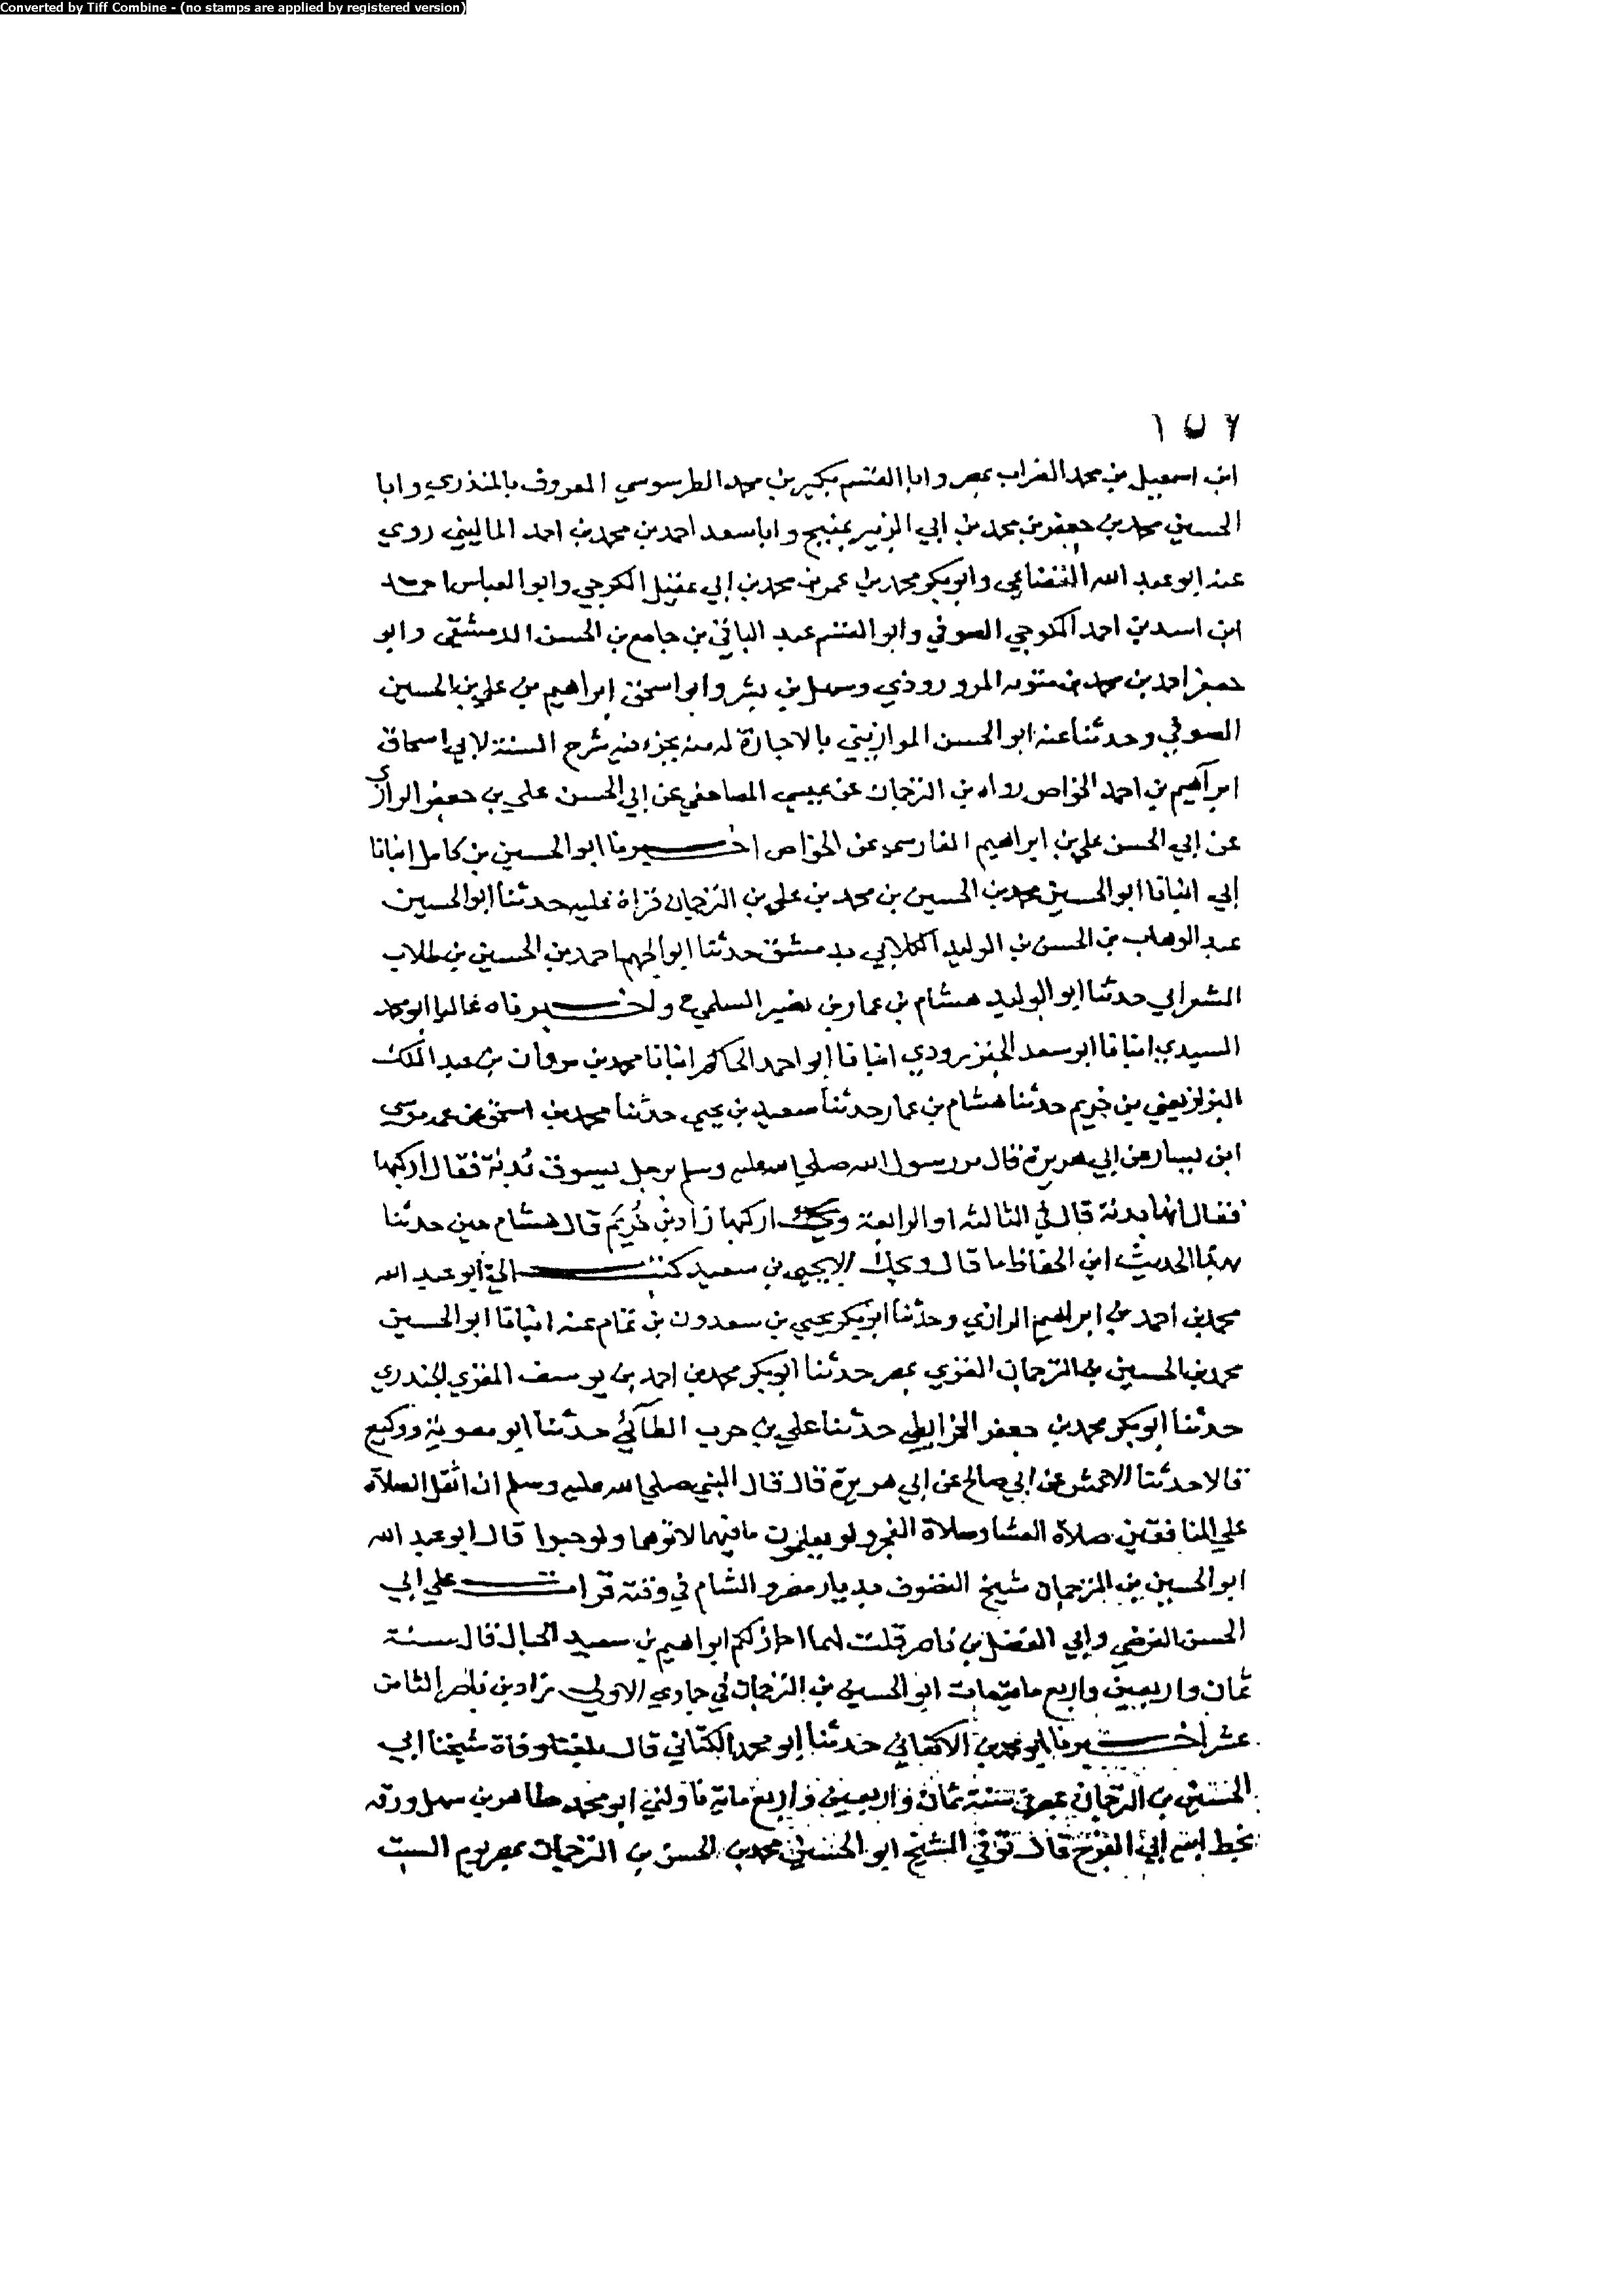 Converted by Tiff Combine - (no stamps are applied by registered version)
١٥٦
ابن اسمعيل بن محمد الضراب بمصر وابا القسم بكير بن محمد الطرسوسي المعروف بالمنذري وابا
الحسين محمد بن جعفر بن محمد بن ابي الزبير بمنبج وابا سعد احمد بن محمد بن احمد الماليني روي
عنه ابو عبد الله القضاعي وابو بكر محمد بن عمر بن محمد بن ابي عقيل الكرجي وابو العباس احمد
ابن اسد بن احمد الكوجي الصوفي وابو القسم عبد الباقي بن جامع بن الحسن الدمشقي وابو
جعفر احمد بن محمد بن متويه المروروذي وسهل بن بشر وابو اسحق ابراهيم بن علي بن الحسين
الصوفي وحدثنا عنه ابو الحسن الموازيني بالاجازة له منه بجزء فيه شرح السنة لابي اسحاق
ابرآهيم بن احمد الخواص رواه بن الترجمان عن عيسي المصاحفي عن ابي الحسن علي بن جعفر الرازي
عن ابي الحسن علي بن ابراهيم الفارسي عن الخواص اخبرنا ابو الحسين بن كامل انبانا
ابي انبانا ابو الحسين محمد بن الحسين بن محمد بن علي بن الترجمان قراة عليه حدثنا ابو الحسين
عبد الوهاب بن الحسن بن الوليد الكلابي بدمشق حدثنا ابو الجهم احمد بن الحسين بن طلاب
المشغرابي حدثنا ابو الوليد هشام بن عمار بن نصير السلمي ح واخبرناه عاليا ابو محمد
السيدي انبانا ابو سعد الجنزرودي انبانا ابو احمد الحاكم انبانا محمد بن مروان بن عبد الملك
البزاز يعني بن خريم حدثنا هشام بن عمار حدثنا سعيد بن يحيي حدثنا محمد بن اسحق عن عمه موسي
ابن يسار عن ابي هريرة قال مر رسول الله صلي الله عليه وسلم برجل يسوق بُدنة فقال اركبها
فقال انها بدنة قال في الثالثة او الرابعة ويحك اركبها زاد بن خُريم قال هشام حين حدثنا
بهذا الحديث ابن الحفاظ ما قال ويحك الا يحيي بن سعيد كتب الي ابو عبد الله
محمد بن احمد بن ابراهيم الرازي وحدثنا ابو بكر يحيي بن سعدون بن تمام عنه انبانا ابو الحسين
محمد بن الحسين بن الترجمان الغزي بمصر حدثنا ابو بكر محمد بن احمد بن يوسف الجندري
حدثنا ابو بكر محمد بن جعفر الخرايطي حدثنا علي بن حرب الطآئي حدثنا ابو معوية ووكيع
قالا حدثنا الاعمش عن ابي صالح عن ابي هريرة قال قال النبي صلي الله عليه وسلم ان اثقل الصلاة
علي المنافقين صلاة العشا وصلاة الفجر ولو يعلمون ما فيهما لاتوهما ولو حبوا قال ابو عبد الله
ابو الحسين بن الترجمان شيخ التصوف بديار مصر والشام في وقته قرات علي ابي
الحسن الفرضي وابي الفضل بن ناصر قلت لهما اجاز لكم ابراهيم بن سعيد الحبال قال سنة
ثمان واربعين واربع ماية مات ابو الحسين بن الترجمان في جمادي الاولي زاد بن ناصر الثامن
عشر اخبرنا ابو محمد بن الاكفاني حدثنا ابو محمد الكتاني قال بلغتنا وفاة شيخنا ابي
الحسين بن الترجمان بمصر في سنة ثمان واربعين واربع ماية ناولني ابو محمد طاهر بن سهل ورقة
بخط ابي الفرج قال توفي الشيخ ابو الحسين محمد بن الحسين بن الترجمان بمصر يوم السبت